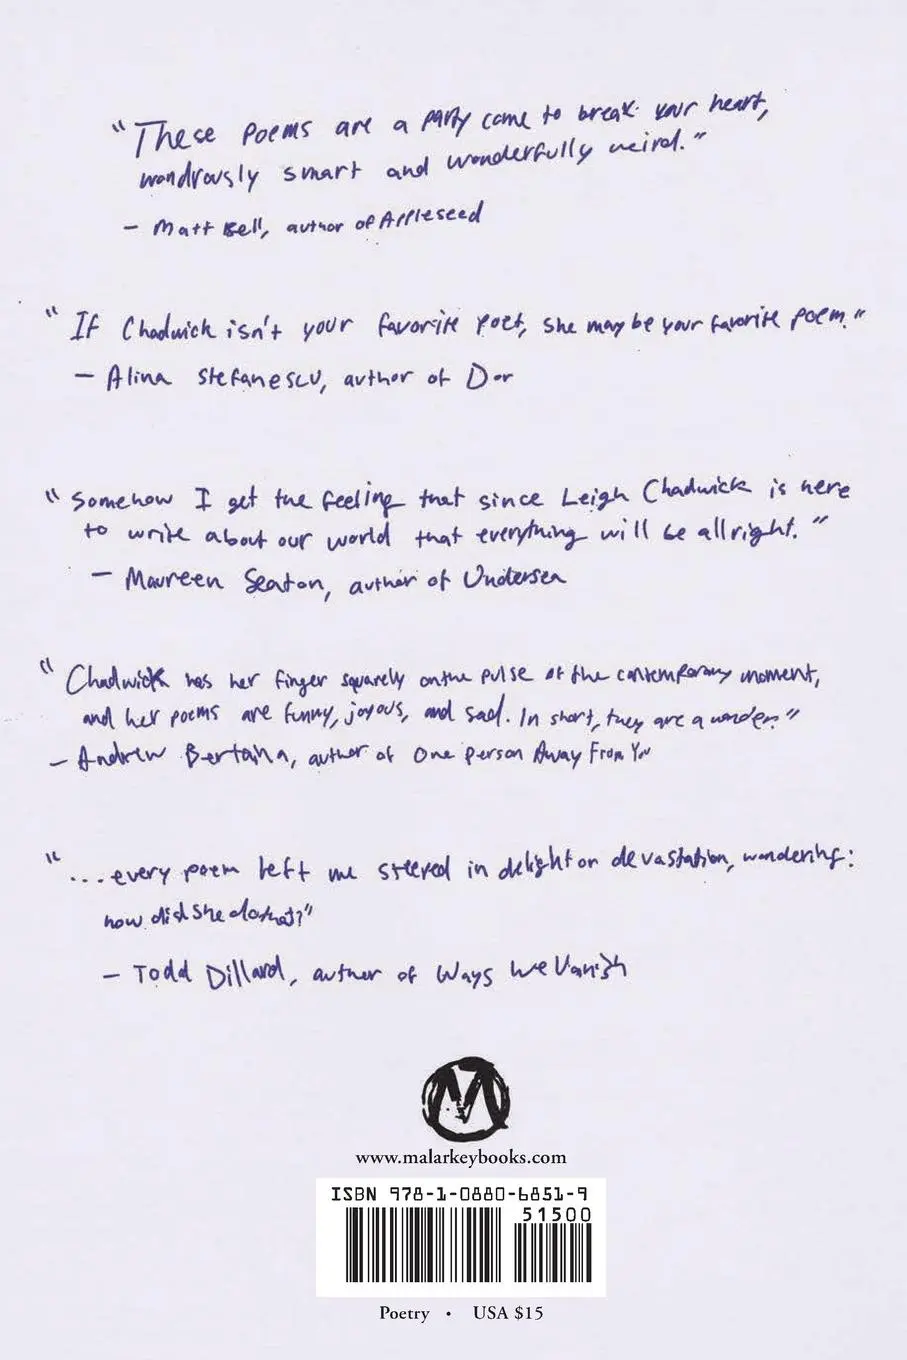 "These poems are a party come to break your heart,
wondrously smart and wonderfully weird."
— Matt Bell, author of Appleseed
"If Chadwick isn't your favorite poet, she may be your favorite poem."
— Alina Stefanescu, author of Dor
"Somehow I get the feeling that since Leigh Chadwick is here
to write about our world that everything will be allright."
— Maureen Seaton, author of Undersea
"Chadwick has her finger squarely on the pulse of the contemporary moment,
and her poems are funny, joyous, and sad. In short, they are a wonder."
— Andrew Bertaina, author of One Person Away From You
"...every poem left me steered in delight or devastation, wondering:
how did she do that?"
— Todd Dillard, author of Ways We Vanish
M
www.malarkeybooks.com
ISBN 978-1-0880-6851-9
51500
Poetry • USA $15